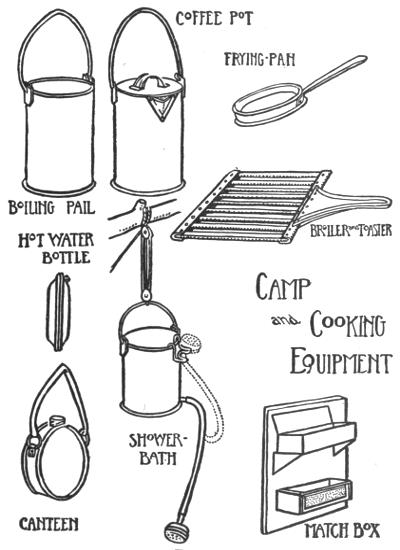 COFFEE POT
FRYING-PAN
BOILING PAIL
BROILER AND TOASTER
HOT WATER
BOTTLE
CAMP
and COOKING
EQUIPMENT
SHOWER-
BATH
CANTEEN
MATCH BOX